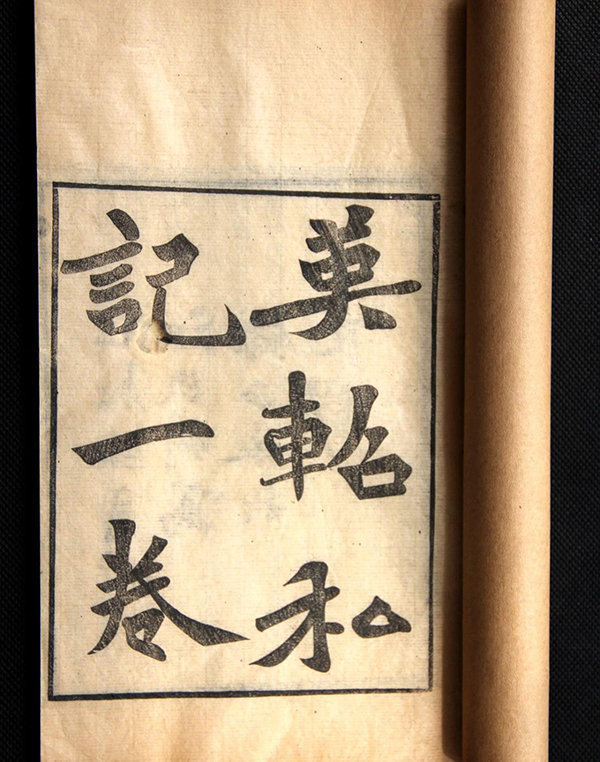 英軺私
記一卷